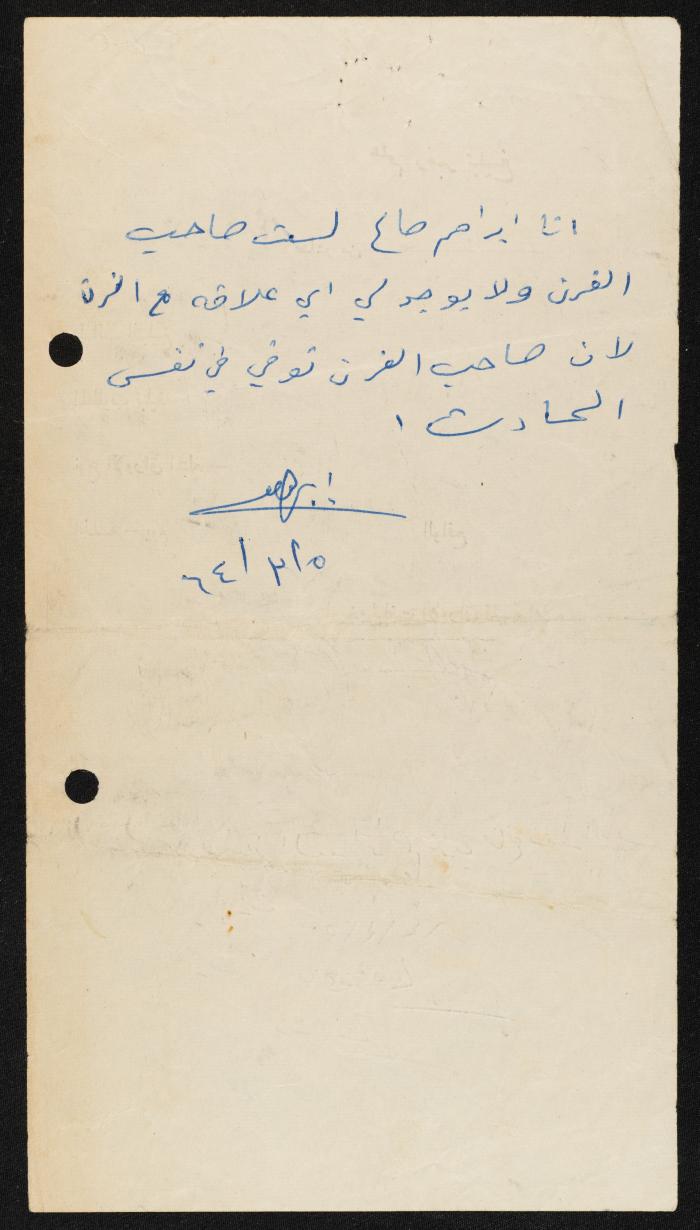 انا ابراهيم صالح لست صاحب
الفرن ولا يوجد لي اي علاقه مع الفرن
لان صاحب الفرن توفي في نفس
الحادث ١
ابراهيم
٦٤/٣/٥